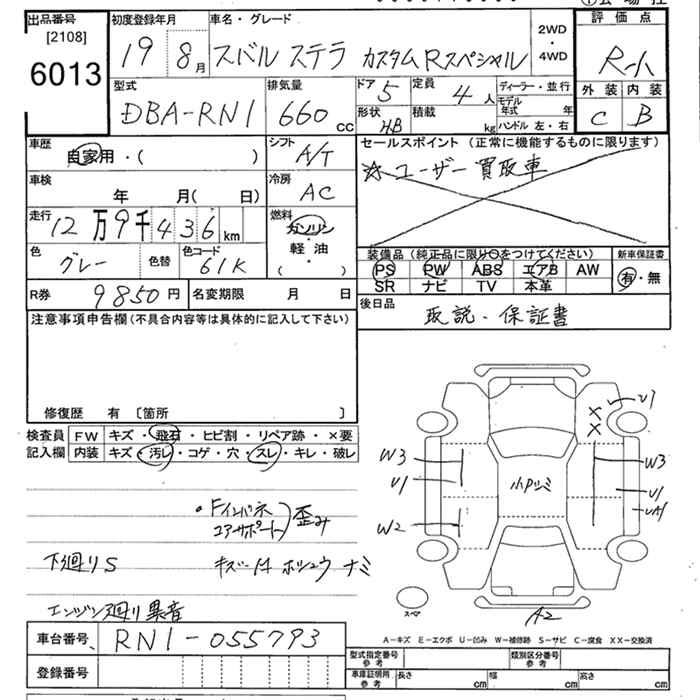 出品番号 初度登録年月 車名・グレード 2WD・4WD 評価点
[2108]
6013
19 8月 スバル ステラ カスタムRスペシャル R-小
外装 内装
C B
型式 排気量 ドア 定員 ディーラー・並行
DBA-RN1 660cc 5 4人 モデル年式 年
形状 積載 ハンドル 左・右
HB kg
車歴 シフト セールスポイント (正常に機能するものに限ります)
自家用・( ) A/T ☆ユーザー買取車
車検 冷房
年 月(日) AC
走行 燃料
12万9千436km ガソリン・軽油
( )
色 色替 色コード
グレー 61K
装備品 (純正品に限り○をつけてください) 新車保証書
PS PW ABS エアB AW 有・無
SR ナビ TV 本革
R券 9850円 名変期限 月 日
後日品 取説・保証書
注意事項申告欄 (不具合内容等は具体的に記入して下さい)
修復歴 有 〔箇所 〕
検査員記入欄 FW キズ・飛石・ヒビ割・リペア跡・×要
内装 キズ・汚レ・コゲ・穴・スレ・キレ・破レ
XX U1
W3 W3
U1 小Pツミ U1
W2 UA1
・Fインパネ コアサポート)歪み
下廻りS キズ・ ホシュウ ナミ
エンジン廻り異音
スペア A2
A-キズ E-エクボ U-凹み W-補修跡 S-サビ C-腐食 XX-交換済
車台番号 RN1-055793
型式指定番号 参考 類別区分番号 参考
登録番号
車庫証明用 参考 長さ cm 幅 cm 高さ cm